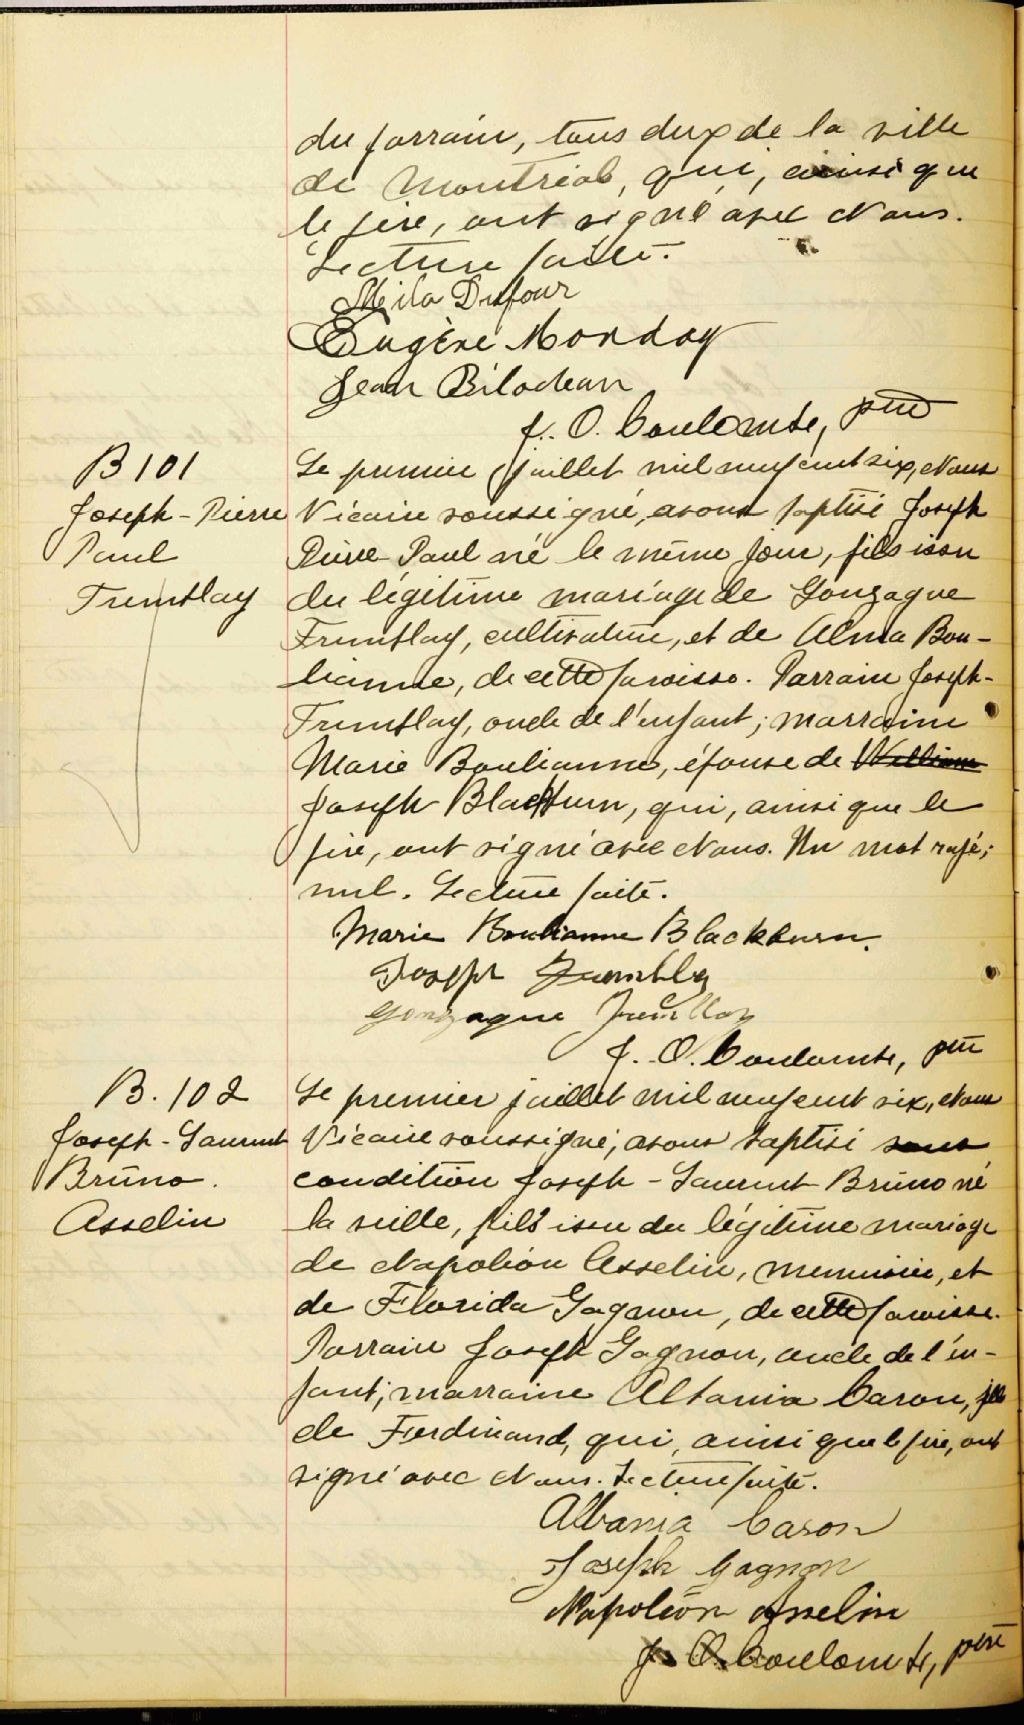 du parrain, tous deux de la ville
de Montréal, qui, ainsi que
le père, ont signé avec Nous.
Lecture faite.
Mila Dufour
Eugène Morday
Jean Bilodeau
J. O. Coulombe, ptre
B 101
Joseph-Pierre
Paul
Tremblay
Le premier juillet mil neuf cent six, Nous
Vicaire soussigné, avons baptisé Joseph
Pierre-Paul né le même jour, fils issu
du légitime mariage de Gonzague
Tremblay, cultivateur, et de Alma Bou-
lianne, de cette paroisse. Parrain Joseph-
Tremblay, oncle de l'enfant; marraine
Marie Boulianne, épouse de William
Joseph Blackburn, qui, ainsi que le
père, ont signé avec Nous. Un mot rayé;
nul. Lecture faite.
Marie Boulianne Blackburn.
Joseph Trembley
Gonzague Tremblay
J. O. Coulombe, ptre
B. 102
Joseph-Laurent
Bruno.
Asselin
Le premier juillet mil neuf cent six, Nous
Vicaire soussigné, avons baptisé sous
condition Joseph-Laurent Bruno né
la veille, fils issu du légitime mariage
de Napoléon Asselin, menuisier, et
de Florida Gagnon, de cette paroisse.
Parrain Joseph Gagnon, oncle de l'en-
fant; marraine Albania Caron, fille
de Ferdinand, qui, ainsi que le père, ont
signé avec Nous. Lecture faite.
Albania Caron
Joseph Gagnon
Napoléon Asselin
J. O. Coulombe, ptre